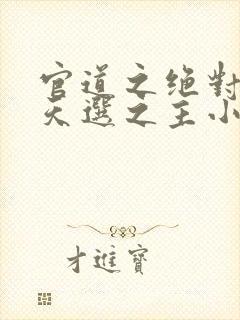 官道之绝對
天選之主小
才進寶